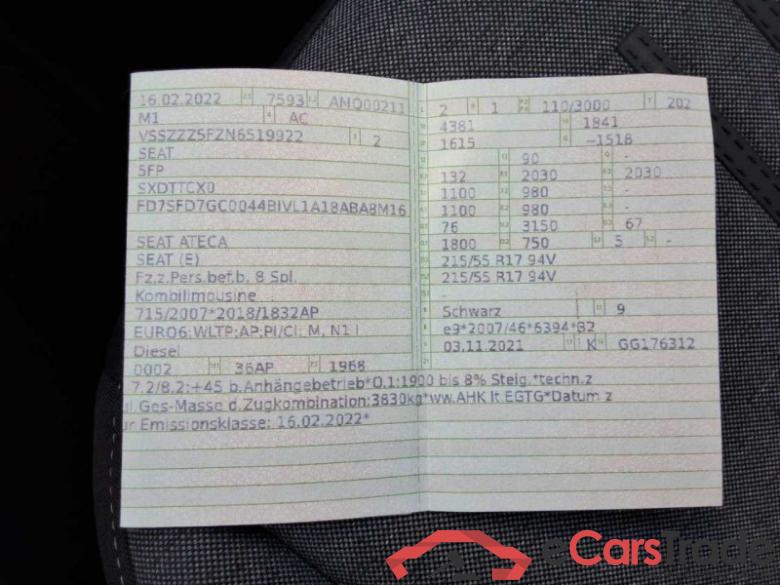 16.02.2022 7593 AMQ00211
M1 AC
VSSZZZ5FZN6519922 2
SEAT
5FP
SXDTTCX0
FD7SFD7GC0044BIVL1A18ABA8M16
SEAT ATECA
SEAT (E)
Fz.z.Pers.bef.b. 8 Spl.
Kombilimousine
715/2007*2018/1832AP
EURO6;WLTP;AP;PI/CI; M, N1 I
Diesel
0002 36AP 1968
2 1 110/3000 202
4381 1841
1615 -1518
90 -
132 2030 2030
1100 980 -
1100 980 -
76 3150 67
1800 750 5 -
215/55 R17 94V
215/55 R17 94V
-
Schwarz 9
e9*2007/46*6394*32
03.11.2021 K GG176312
7.2/8.2:+45 b.Anhängebetrieb*O.1:1900 bis 8% Steig.*techn.z
ul.Ges-Masse d.Zugkombination:3830kg*ww.AHK lt.EGTG*Datum z
ur Emissionsklasse: 16.02.2022*
eCarsTrade